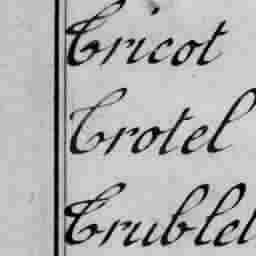 Tricot
Trotel
Trublet